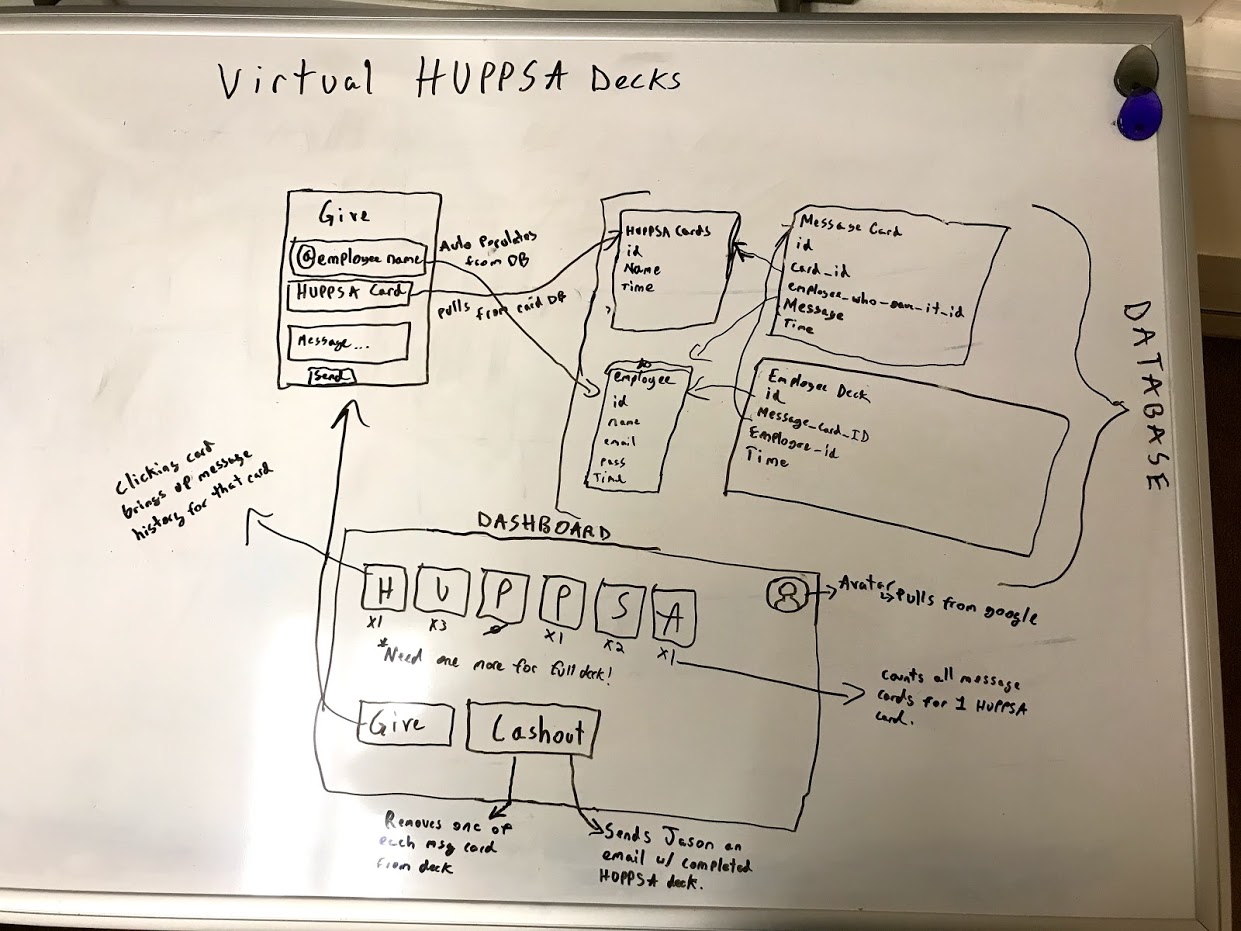 Virtual HUPPSA Decks
Give
@employee name
HUPPSA Card
Message...
Send
Auto Populates
from DB
Pulls from card DB
HUPPSA Cards
id
Name
Time
Message Card
id
card_id
employee_who_gave_it_id
Message
Time
employee
id
name
email
pass
Time
Employee Deck
id
Message_Card_ID
Employee_id
Time
DATABASE
Clicking card
brings up message
history for that card
DASHBOARD
H U P P S A
x1 x3 x1 x2 x1
*Need one more for full deck!
Give
Cashout
Avatar
Pulls from google
counts all message
cards for 1 HUPPSA
card.
Removes one of
each msg card
from deck
Sends Jason an
email w/ completed
HUPPSA deck.